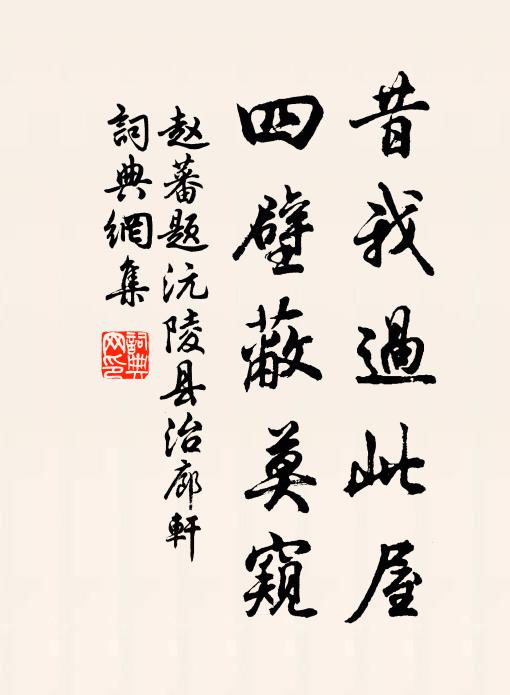 昔我過此屋
四壁蔽莫窺
赵蕃题沅陵县治廊軒
詞典網集
詞典網印